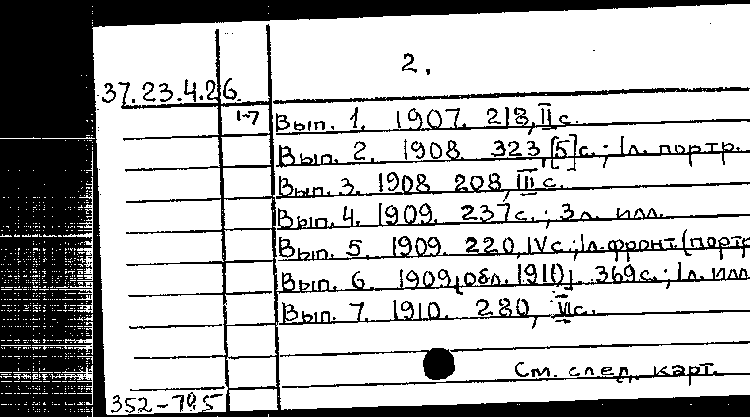 2.
37.23.4.26
1-7
Вып. 1. 1907. 218, II с.
Вып. 2. 1908. 323, [5] с.; 1 л. портр.
Вып. 3. 1908. 208, III с.
Вып. 4. 1909. 237 с.; 3 л. илл.
Вып. 5. 1909. 220, IV с.; 1 л. фронт. (портр
Вып. 6. 1909 [обл. 1910]. 369 с.; 1 л. илл
Вып. 7. 1910. 280, VI с.
См. след. карт.
352-795